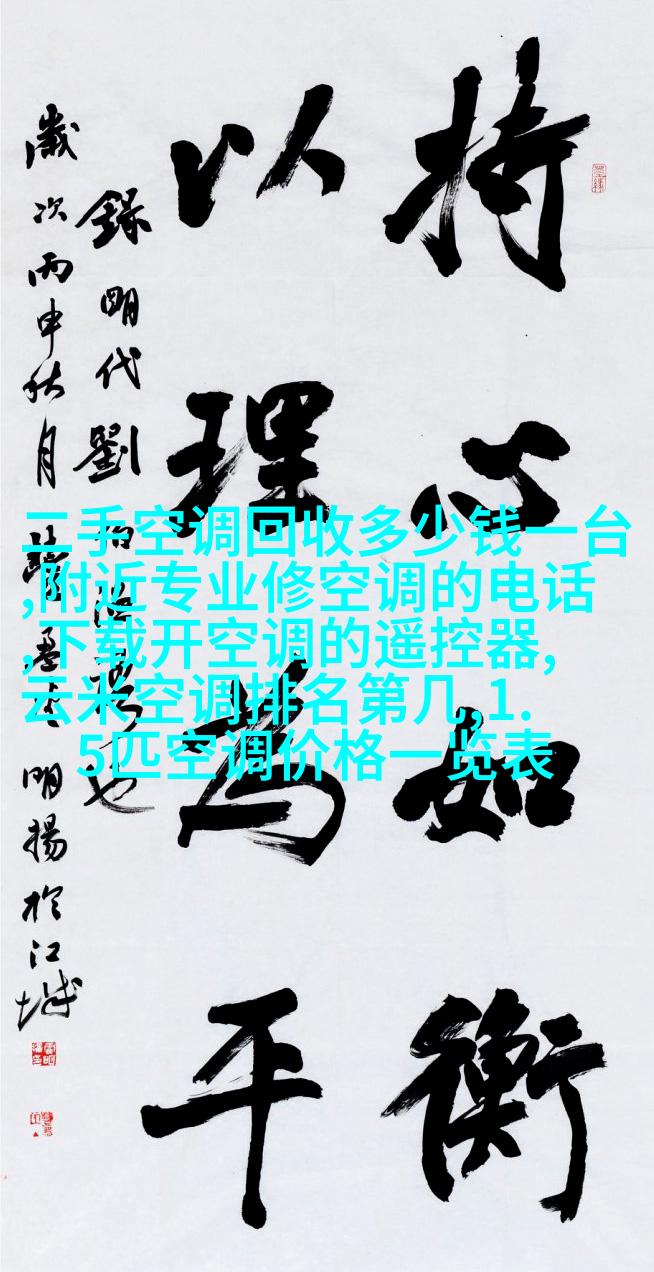 持心如衡
以理为平
錄明代劉伯溫君也
歲次丙申秋月
明揚於江城
二手空调回收多少钱一台
,附近专业修空调的电话
,下载开空调的遥控器,
云米空调排名第几,1.
5匹空调价格一览表